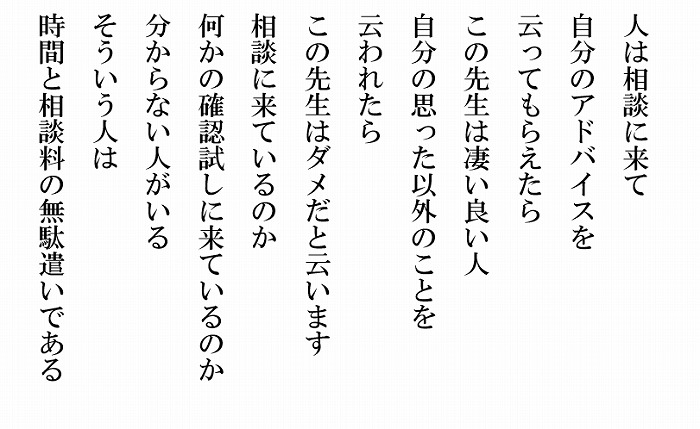 人は相談に来て
自分のアドバイスを
云ってもらえたら
この先生は凄い良い人
自分の思った以外のことを
云われたら
この先生はダメだと云います
相談に来ているのか
何かの確認試しに来ているのか
分からない人がいる
そういう人は
時間と相談料の無駄遣いである